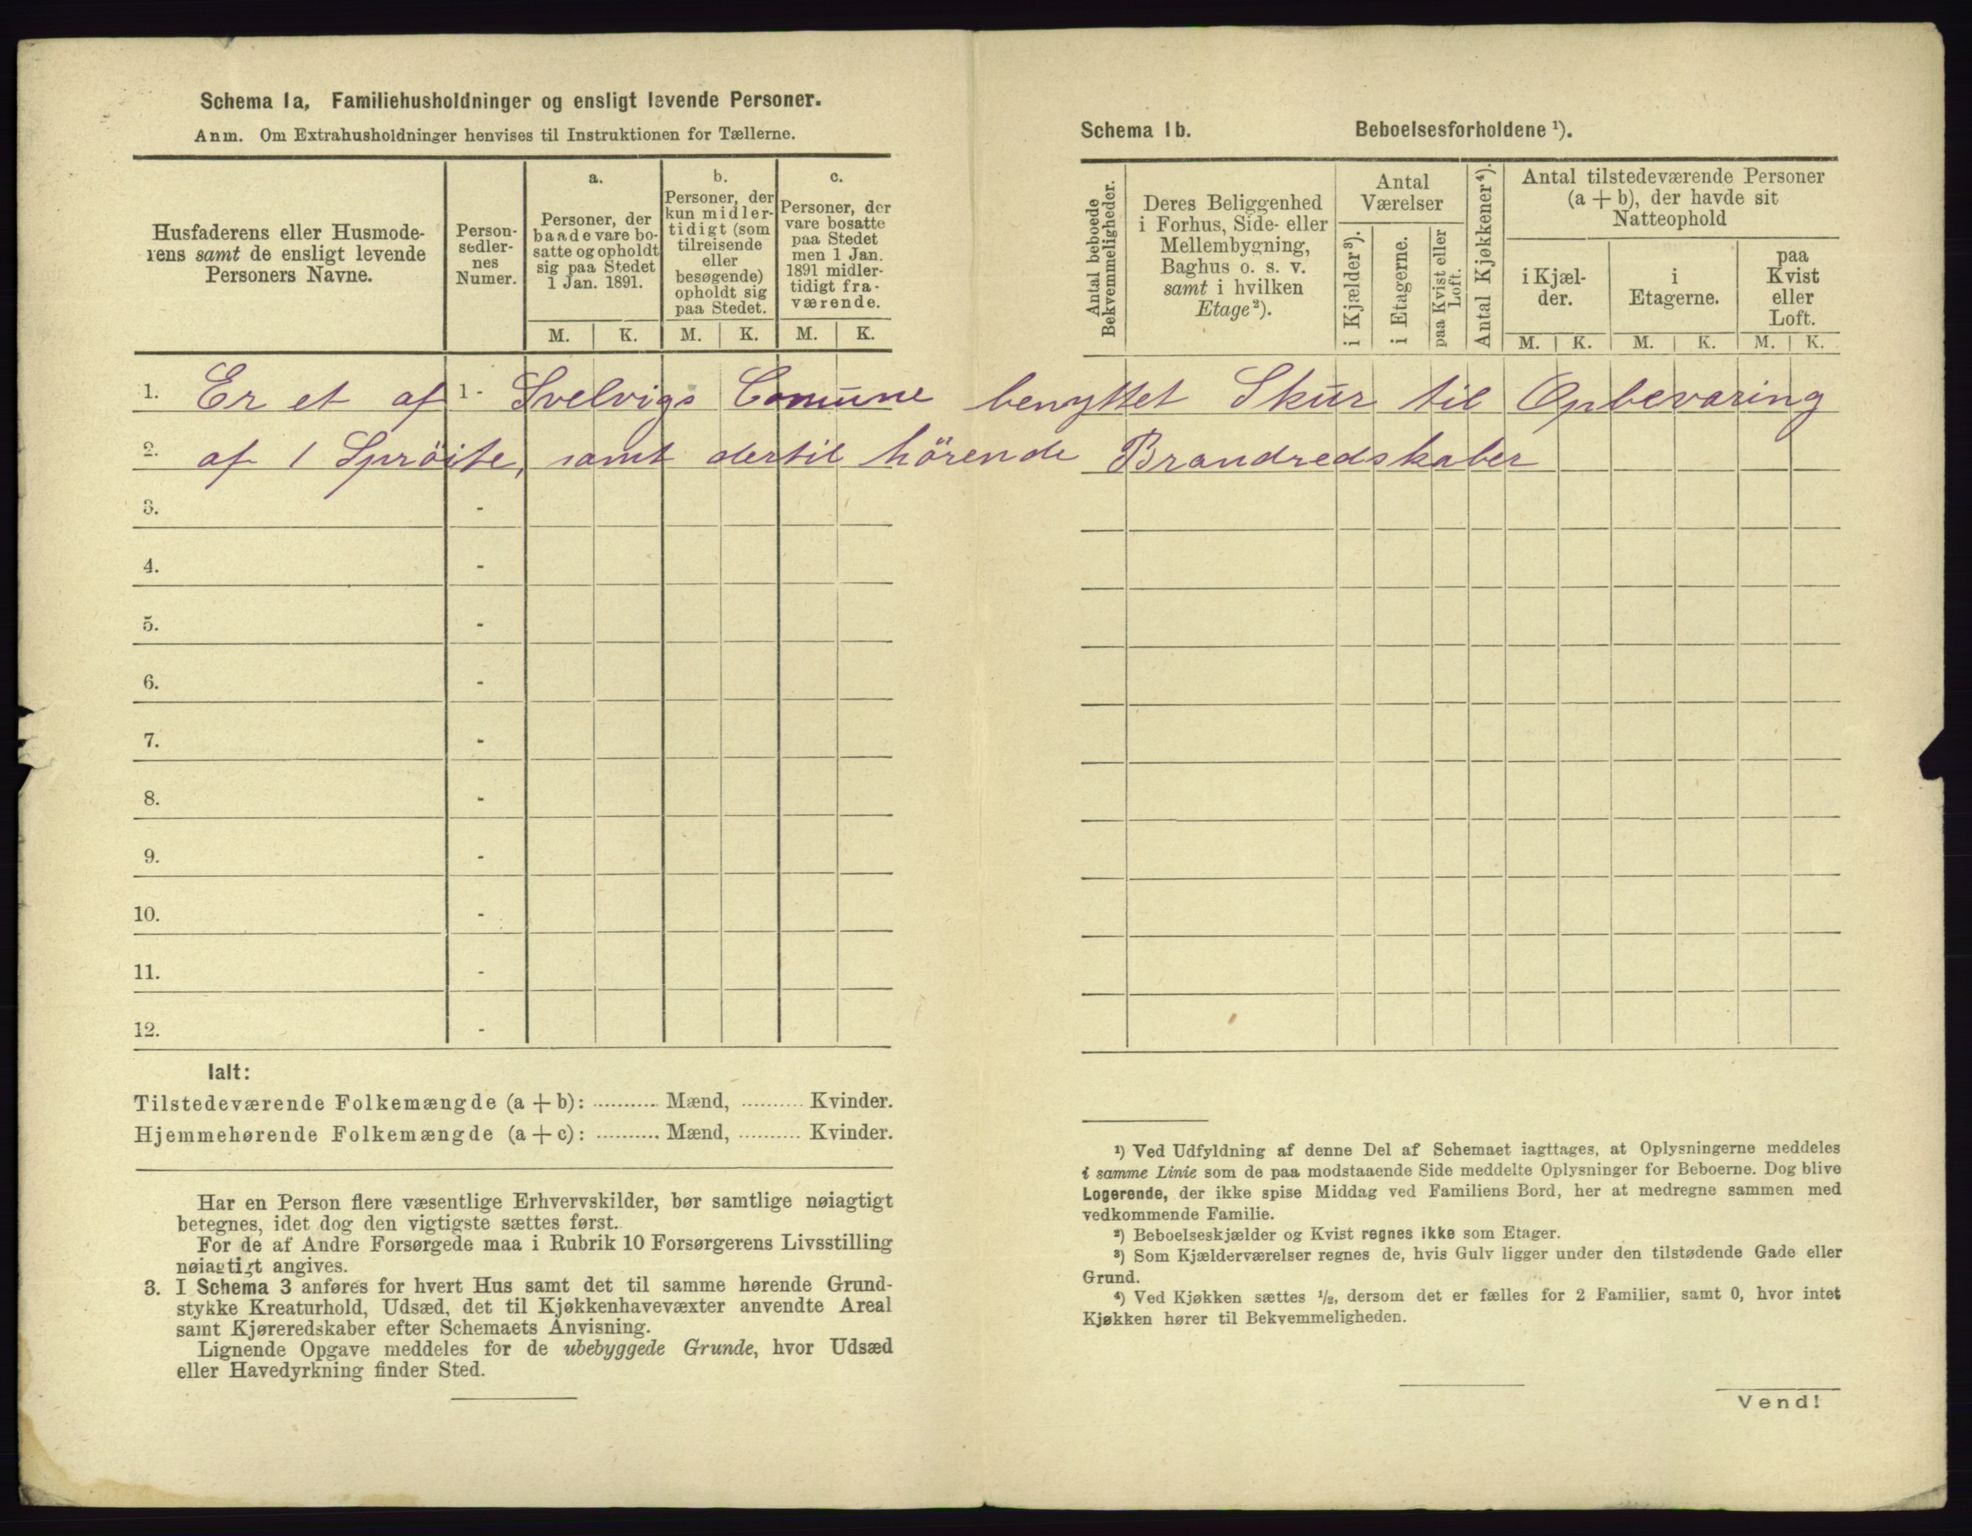 Schema 1a, Familiehusholdninger og ensligt levende Personer.
Anm. Om Extrahusholdninger henvises til Instruktionen for Tællerne.
Husfaderens eller Husmode-
rens samt de ensligt levende
Personers Navne.
Person-
sedler-
nes
Numer.
a.
Personer, der
baade vare bo-
satte og opholdt
sig paa Stedet
1 Jan. 1891.
b.
Personer, der
kun midler-
tidigt (som
tilreisende
eller
besøgende)
opholdt sig
paa Stedet.
c.
Personer, der
vare bosatte
paa Stedet
men 1 Jan.
1891 midler-
tidigt fra-
værende.
M. K. M. K. M. K.
1. Er et af 1- Svelvigs Comune benyttet Skur til Opbevaring
2. af 1 Sprøite, samt dertil hörende Brandredskaber
3. -
4. -
5. -
6. -
7. -
8. -
9. -
10. -
11. -
12. -
Ialt:
Tilstedeværende Folkemængde (a + b): .......... Mænd, .......... Kvinder.
Hjemmehørende Folkemængde (a + c): .......... Mænd, .......... Kvinder.
Har en Person flere væsentlige Erhvervskilder, bør samtlige nøiagtigt
betegnes, idet dog den vigtigste sættes først.
For de af Andre Forsørgede maa i Rubrik 10 Forsørgerens Livsstilling
nøiagtigt angives.
3. I Schema 3 anføres for hvert Hus samt det til samme hørende Grund-
stykke Kreaturhold, Udsæd, det til Kjøkkenhavevæxter anvendte Areal
samt Kjøreredskaber efter Schemaets Anvisning.
Lignende Opgave meddeles for de ubebyggede Grunde, hvor Udsæd
eller Havedyrkning finder Sted.
Schema 1b. Beboelsesforholdene ¹).
Antal beboede
Bekvemmeligheder.
Deres Beliggenhed
i Forhus, Side- eller
Mellembygning,
Baghus o. s. v.
samt i hvilken
Etage²).
Antal
Værelser
i Kjælder³).
i Etagerne.
paa Kvist eller
Loft.
Antal Kjøkkener⁴).
Antal tilstedeværende Personer
(a + b), der havde sit
Natteophold
i Kjæl-
der.
i
Etagerne.
paa
Kvist
eller
Loft.
M. K. M. K. M. K.
¹) Ved Udfyldning af denne Del af Schemaet iagttages, at Oplysningerne meddeles
i samme Linie som de paa modstaaende Side meddelte Oplysninger for Beboerne. Dog blive
Logerende, der ikke spise Middag ved Familiens Bord, her at medregne sammen med
vedkommende Familie.
²) Beboelseskjælder og Kvist regnes ikke som Etager.
³) Som Kjælderværelser regnes de, hvis Gulv ligger under den tilstødende Gade eller
Grund.
⁴) Ved Kjøkken sættes ½, dersom det er fælles for 2 Familier, samt 0, hvor intet
Kjøkken hører til Bekvemmeligheden.
Vend!